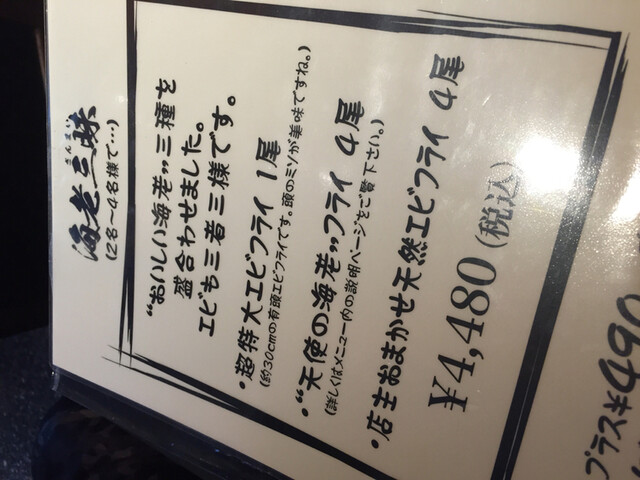 海老三昧
ざんまい
(2名〜4名様で…)
"おいしい海老"三種を
盛合わせました。
エビも三者三様です。
・超特大エビフライ 1尾
(約30cmの有頭エビフライです。頭のミソが美味ですね。)
・"天使の海老"フライ 4尾
(詳しくはメニュー内の説明ページをご覧下さい。)
・店主おまかせ天然エビフライ 4尾
¥4,480(税込)
プラス¥490